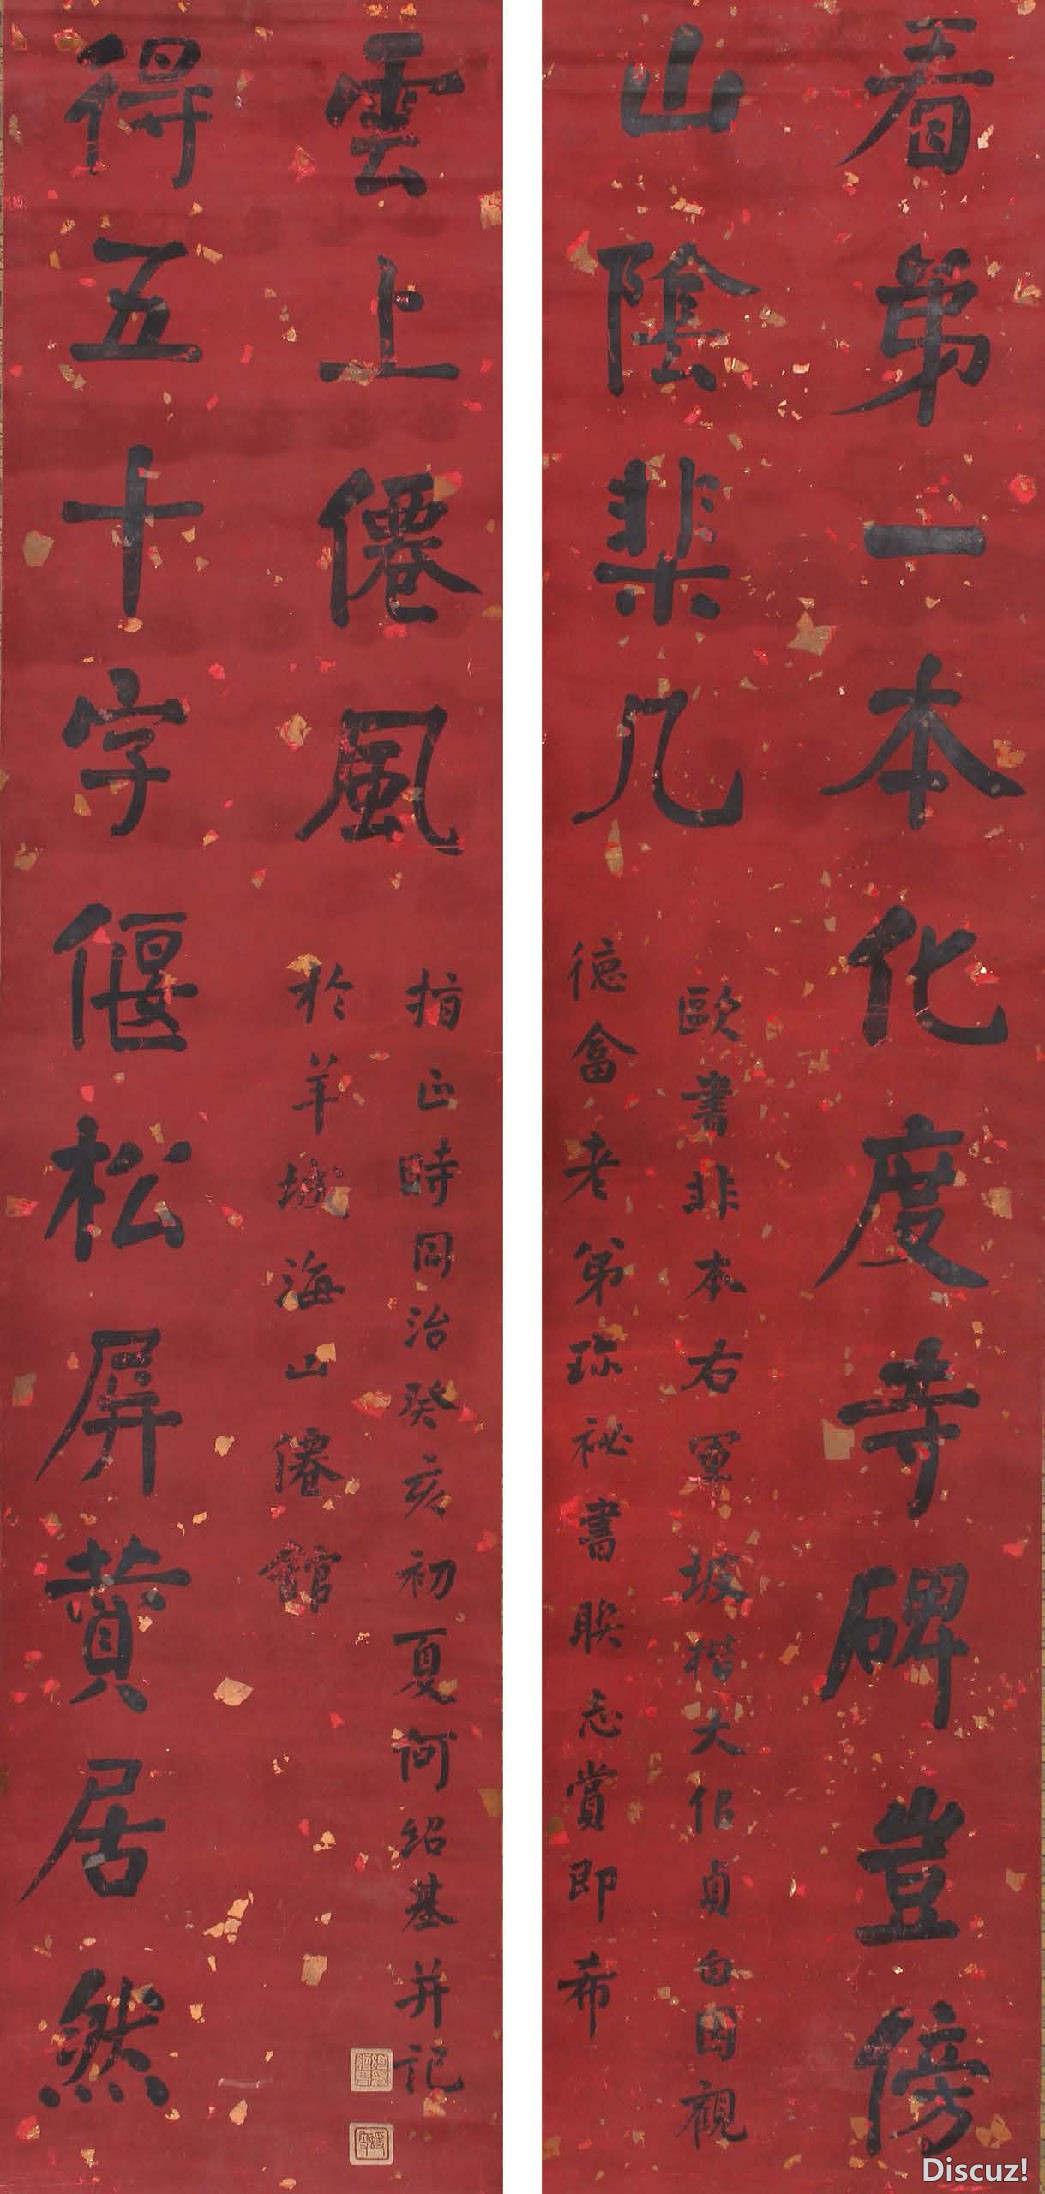 看第一本化度寺碑豈傍
山陰棐几
歐書非本右軍坡楷大佀貞白因觀
德畬老弟珎祕書聯志賞即希
得五十字偃松屏贊居然
雲上僊風
指正時同治癸亥初夏何紹基并記
於羊城海山僊館
Discuz!